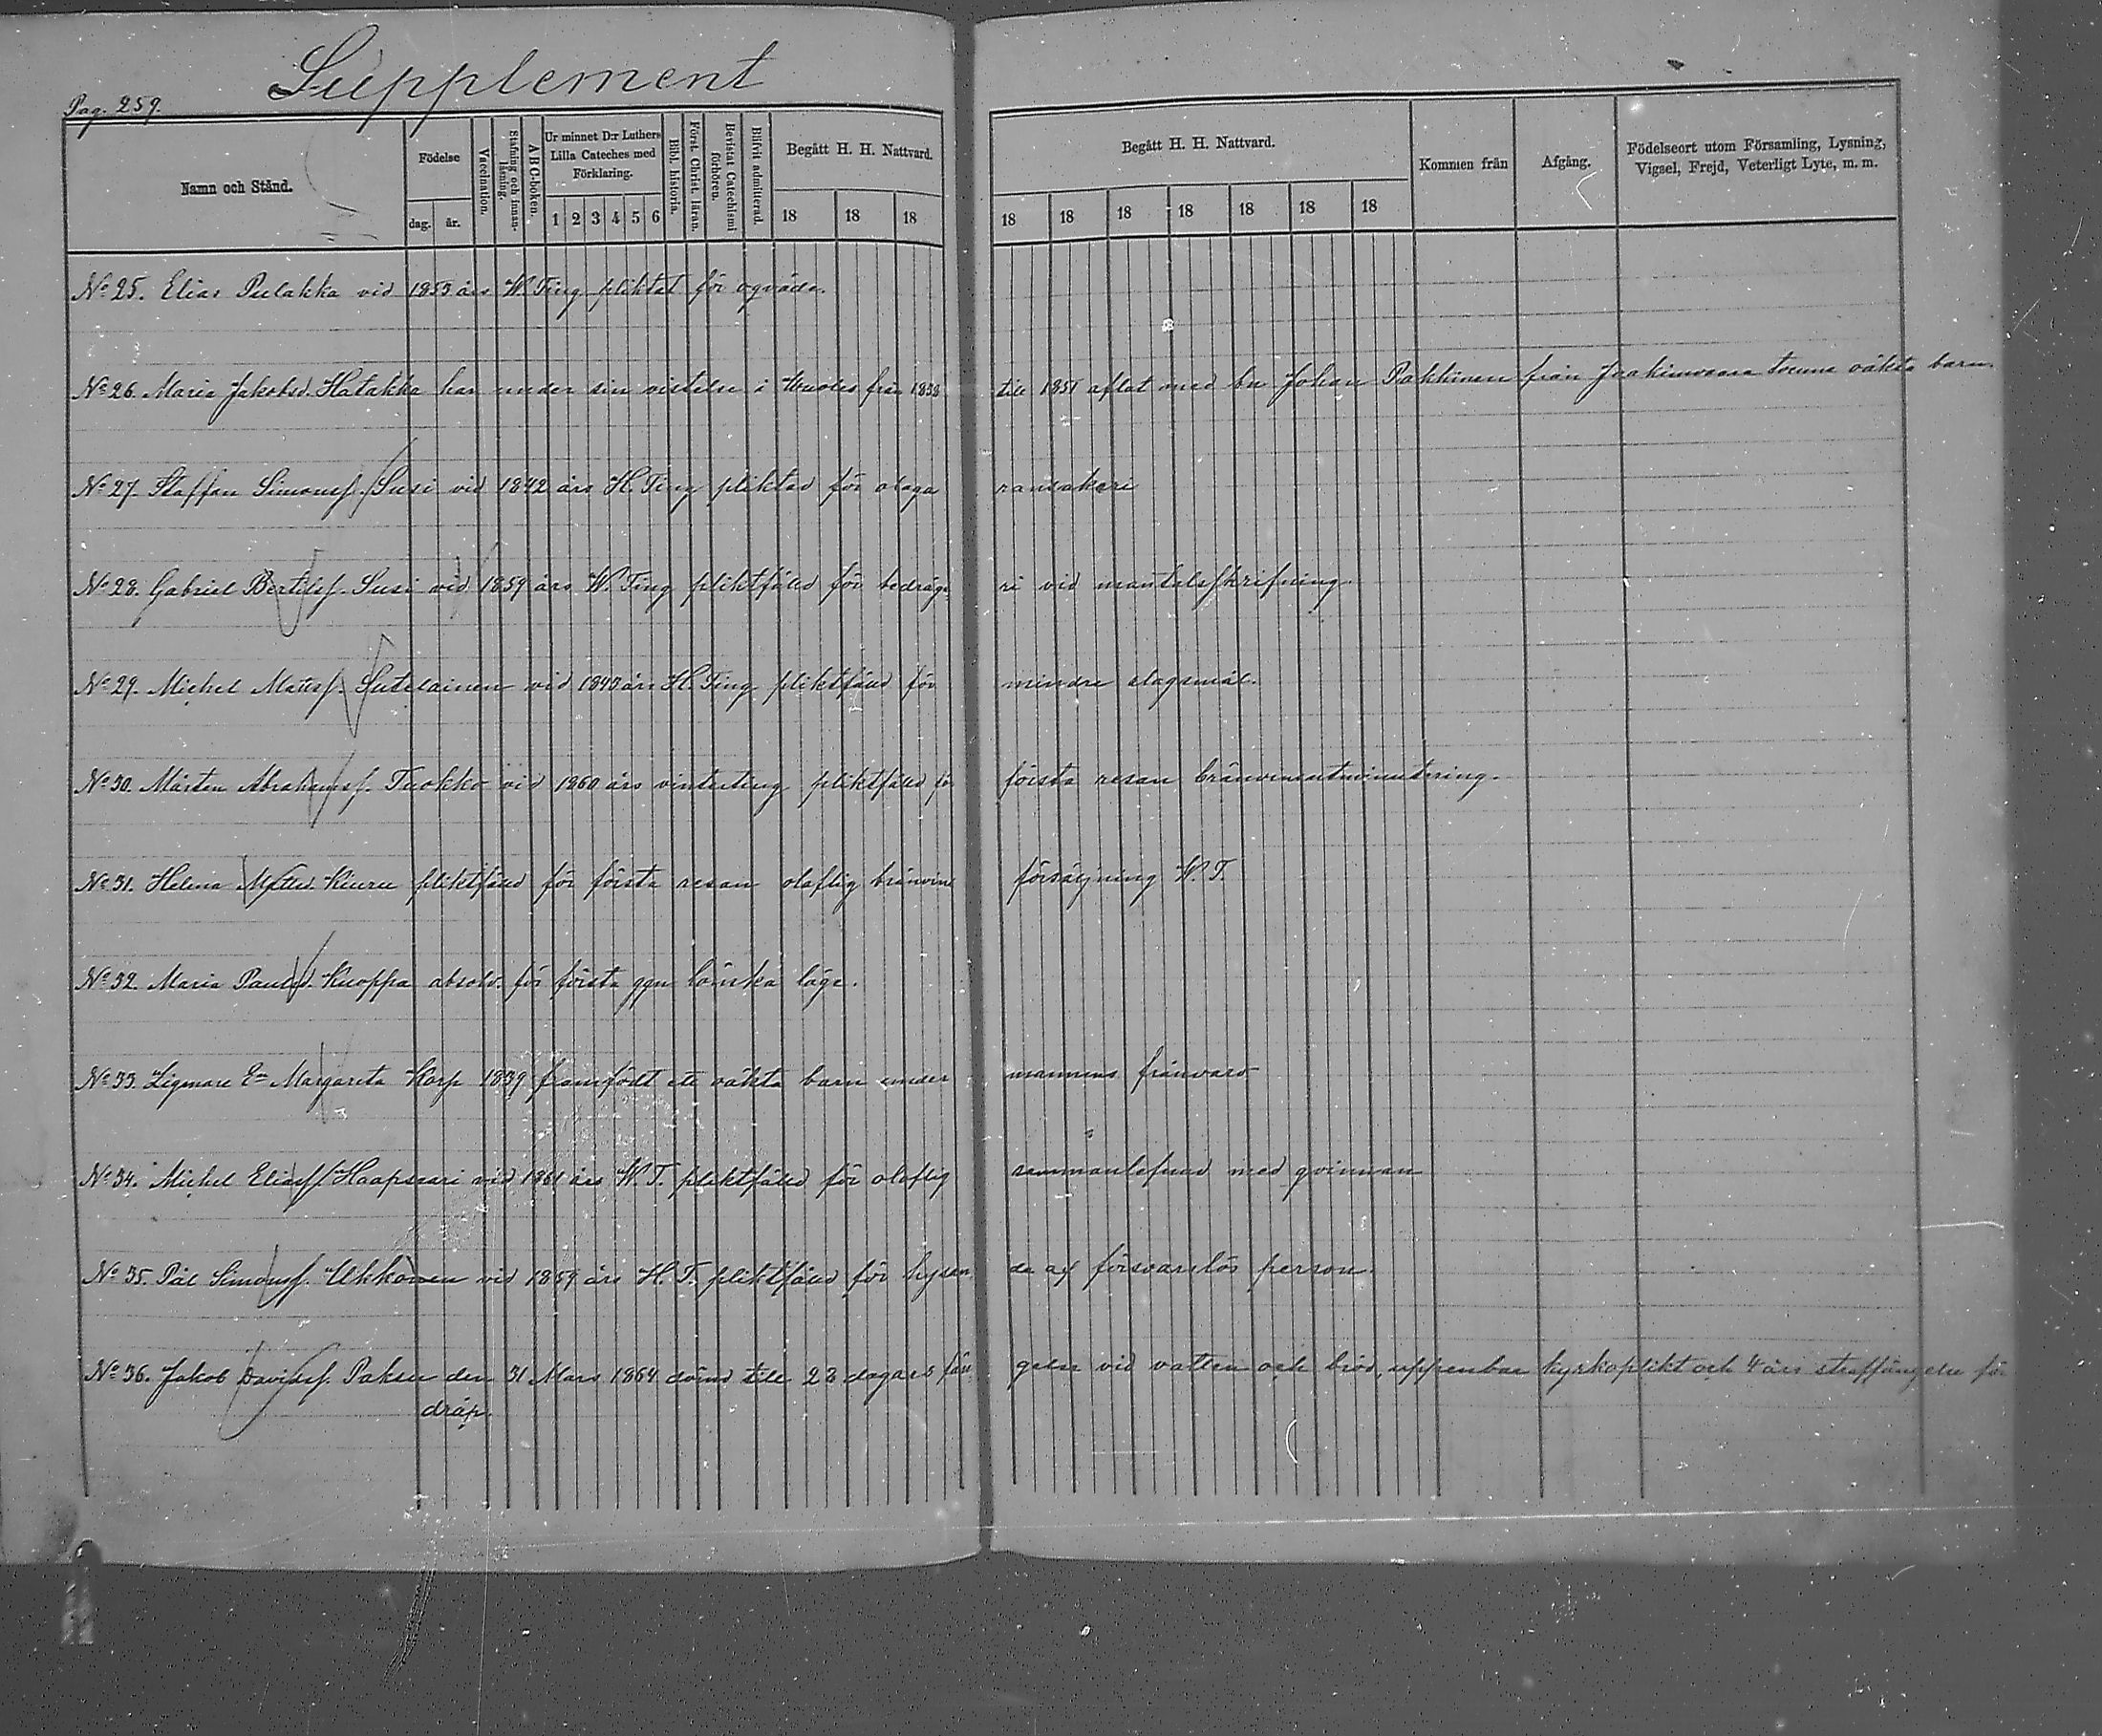 Supplement
Pag. 259.
Namn och Stånd.
Födelse
dag. år.
Vaccination.
Stafning och innanläsning.
A B C-boken.
Ur minnet D:r Luthers Lilla Cateches med Förklaring.
1 2 3 4 5 6
Bibl. historia.
Först. Christ. läran.
Bevistat Catechismi förhören.
Blifvit admitterad.
Begått H. H. Nattvard.
18 18 18
Begått H. H. Nattvard.
18 18 18 18 18 18 18
Kommen från
Afgång.
Födelseort utom Församling, Lysning, Vigsel, Frejd, Veterligt Lyte, m. m.
No 25. Elias Pulakka vid 1853 års W. Ting pliktat för ogväde.
No 26. Maria Jakobsd. Hatakka har under sin vistelse i från 1838 till 1851 aflat med Johan Pakkinen från Joakimvaara oäkta barn.
No 27. Staffan Simonss. Susi vid 1842 års H. Ting pliktad för olaga ransakeri
No 28. Gabriel Bertilss. Susi vid 1859 års W. Ting pliktfälld för bedrägeri vid mantalsskrifning.
No 29. Michel Matss. Sutelainen vid 1840 års H. Ting pliktfälld för mindre slagsmål.
No 30. Mårten Abrahamss. Tuokko vid 1860 års vinterting pliktfälld för första resan bränvinsutminutering.
No 31. Helena Kiuru pliktfälld för första resan olaflig bränvins försäljning W. T.
No 32. Maria Paulsd. Kuoppa absolv. för första ggn lönska läge.
No 33. Margareta Korp 1839 framfödt ett oäkta barn under mannens frånvaro
No 34. Michel Eliass. Haapsaari vid 1861 års W. T. pliktfälld för olaflig sammanlefnad med qvinnan
No 35. Pål Simonss. Ukkonen vid 1859 års H. T. pliktfälld för hysande af försvarslös person.
No 36. Jakob Davidss. Paksu den 31 Mars 1864 dömd till 28 dagars fängelse vid vatten och bröd, uppenbar kyrkoplikt och 4 års straffängelse för
dråp.